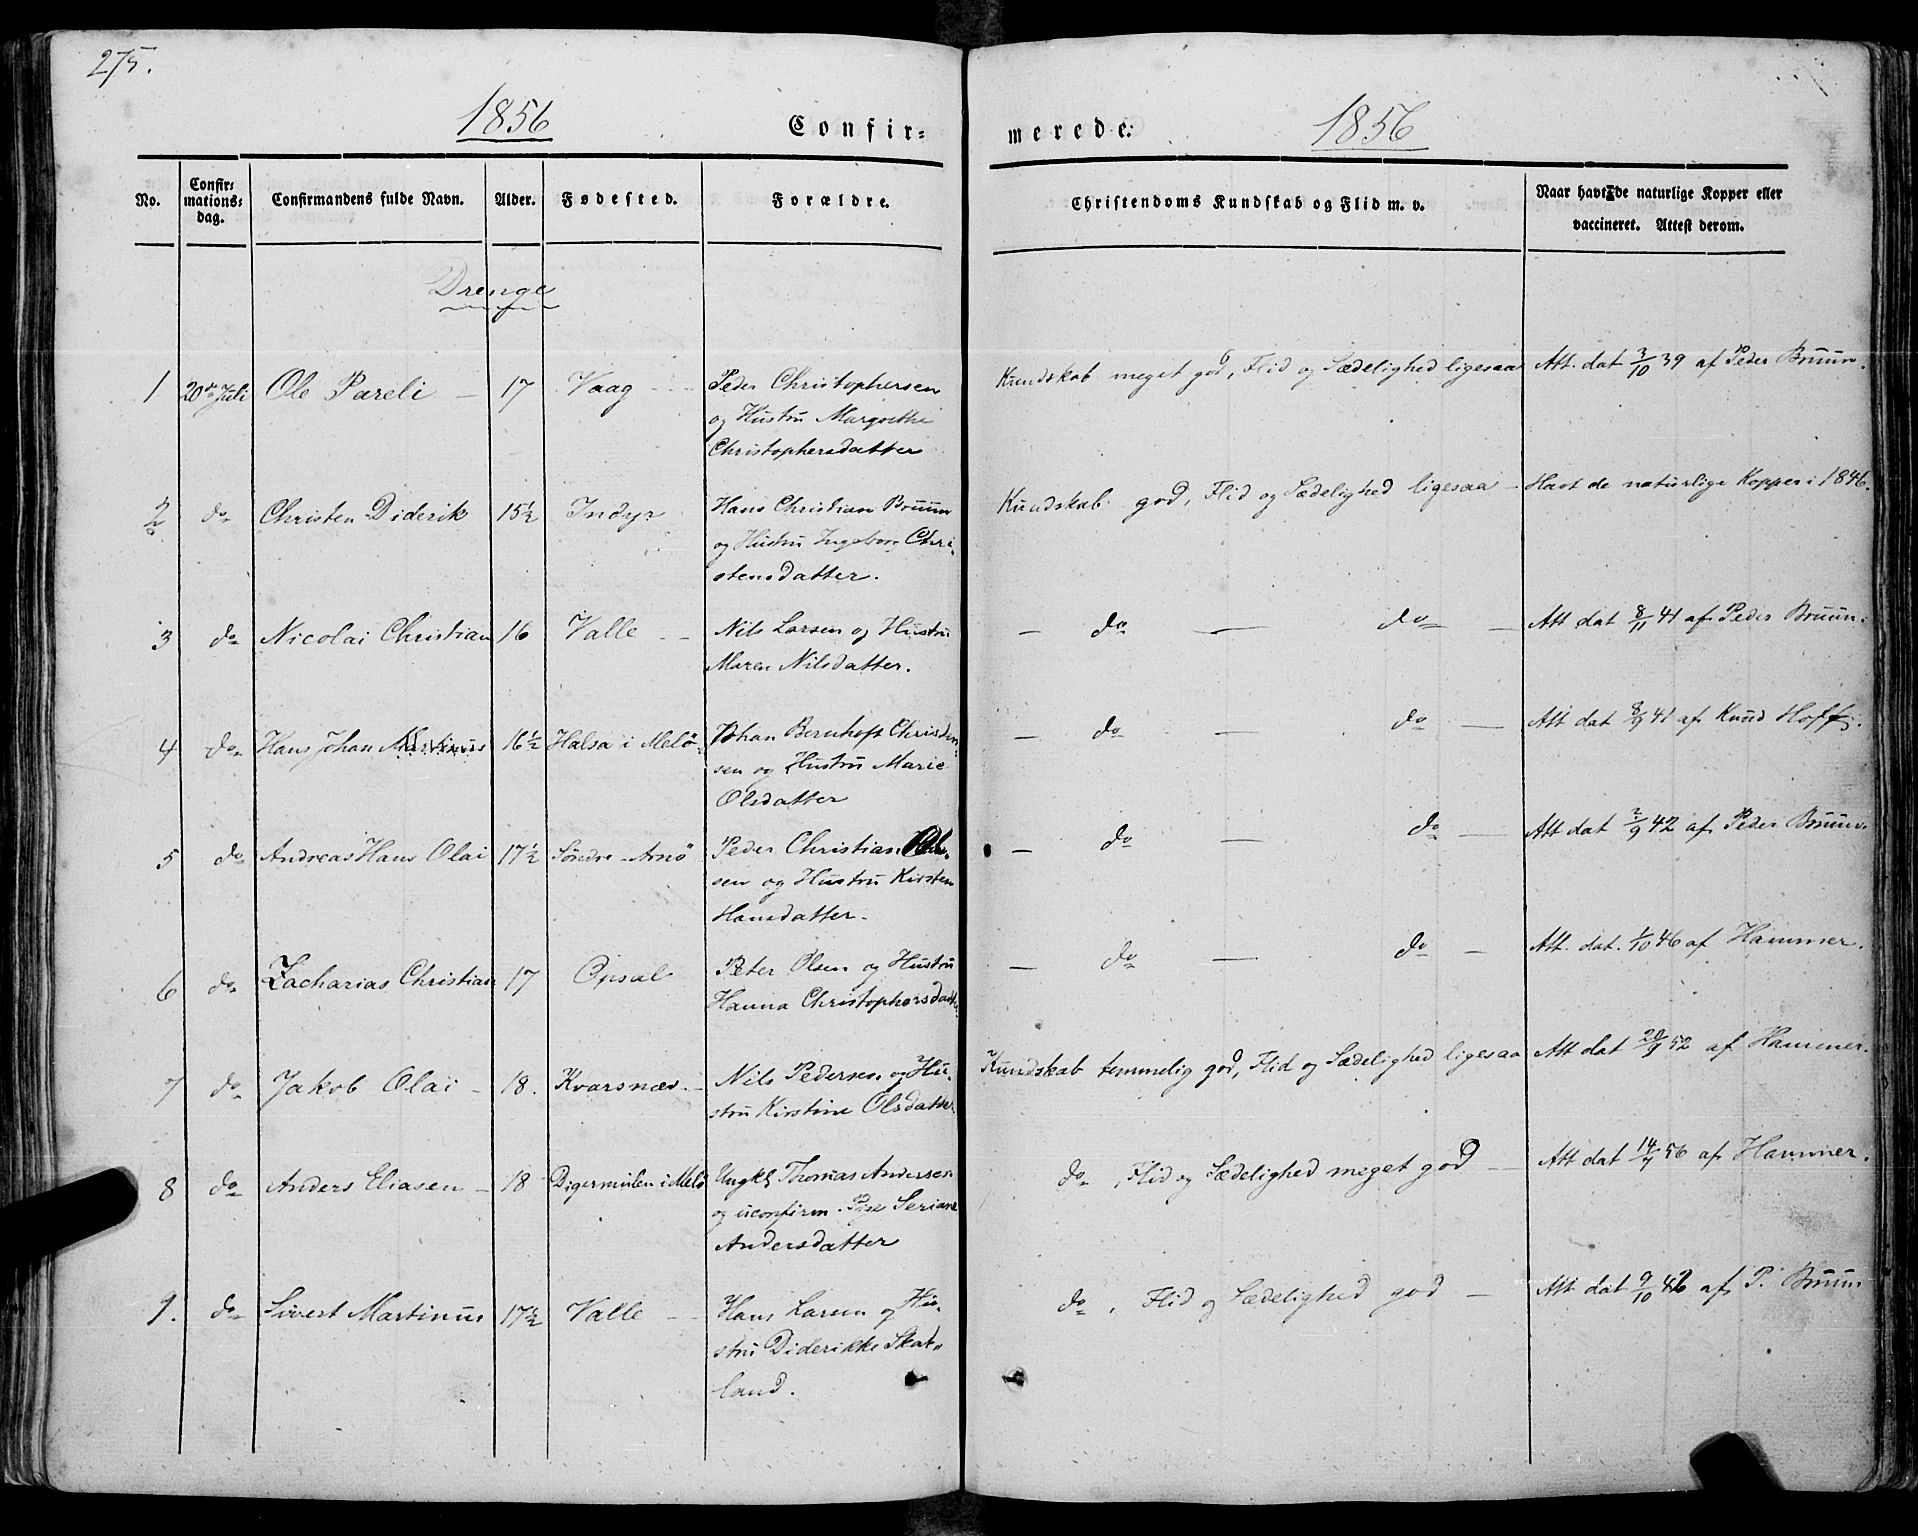 275.
1856
Confir=
merede:
1856
No.
Confir=
mations=
dag.
Confirmandens fulde Navn.
Alder.
Fødested.
Forældre.
Christendoms Kundskab og Flid m. v.
Naar havt de naturlige Kopper eller
vaccineret. Attest derom.
Drenge
1 20de Juli Ole Pareli – 17 Vaag - - Peder Christophersen
og Hustru Margrethe
Christophersdatter
Kundskab meget god, Flid og Sædelighed ligesaa Att. dat 3/10 39 af Peder Bruun.
2 do Christen Diderik 15 1/2 Indyr Hans Christian Bruun
og Hustru Ingeborg Chri-
stensdatter.
Kundskab god, Flid og Sædelighed ligesaa – Havt de naturlige Kopper i 1846.
3 do Nicolai Christian 16 Valle - - Nils Larsen og Hustru
Maren Nilsdatter.
– do – do – Att dat 8/11 41 af Peder Bruun.
4 do Hans Johan Martinus 16 1/2 Halsa i Melö Johan Bernhoft Christen-
sen og Hustru Marie
Olsdatter
– do – do – Att dat 8/9 41 af Knud Hoff
5 do Andreas Hans Olai 17 1/2 Söndre-Arnö Peder Christian Ol-
sen og Hustru Kirsten
Hansdatter.
– do – do – Att dat 2/9 42 af Peder Bruun.
6 do Zacharias Christian 17 Opsal Peter Olsen og Hustru
Hanna Christophersdatter
– do – do – Att. dat. 1/10 46 af Hammer.
7 do Jakob Olai – 18. Kvarsnæs. – Nils Pedersen og Hu-
stru Kirstine Olsdatter
Kundskab temmelig god, Flid og Sædelighed ligesaa Att dat 20/9 52 af Hammer.
8 do Anders Eliasen – 18 Digermulen i Melö Ungk. Thomas Andersen
og uconfirm. Pige Seriane
Andersdatter
do , Flid og Sædelighed meget god – Att dat 14/7 56 af Hammer.
9. do Sivert Martinus 17 1/2 Valle - - Hans Larsen og Hu-
stru Diderikke Skat-
land.
do , Flid og Sædelighed god – Att dat 9/10 42 af P. Bruun